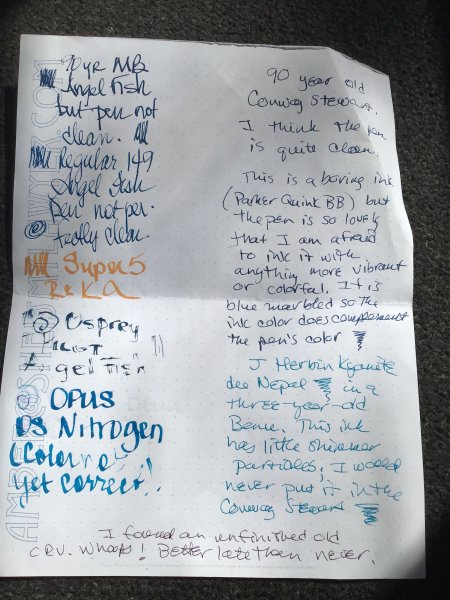 90 yr MB
Angel Fish
but pen not
clean.
Regular 149
Angel Fish
Pen not per-
fectly clean
Super5
Osprey
gel Fish
OPUS
DS Nitrogen
(Color no
yet correct!)
90 year old
Conway Stewart.
I think the pen
is quite clean.
This is a boring ink
(Parker Quink BB) but
the pen is so lovely
that I am afraid
to ink it with
anything more vibrant
or colorful. It is
blue marbled so the
ink color does complement
the pen's color
J Herbin Kyanite
du Nepal in a
three-year-old
Benu. This ink
has little shimmer
particles; I would
never put it in the
Conway Stewart
I found an unfinished old
CRV. Whoops! Better late than never.